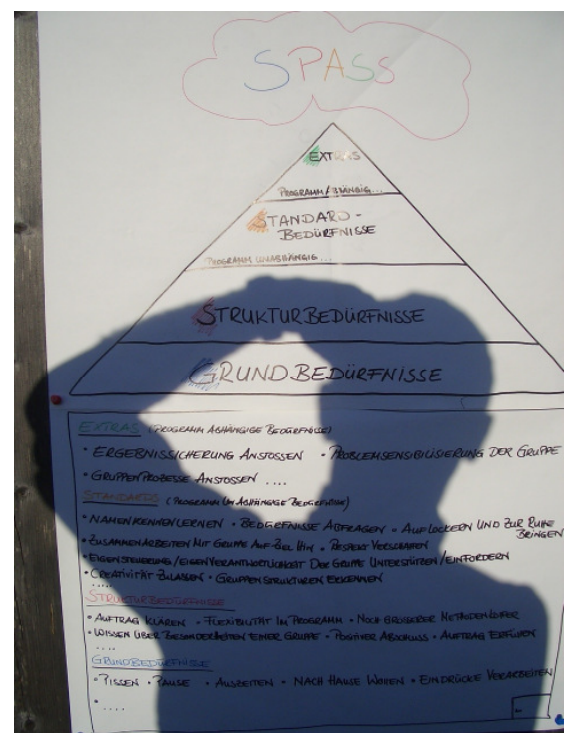 SPASS
EXTRAS
PROGRAMM ABHÄNGIG...
STANDARD-
BEDÜRFNISSE
PROGRAMM UNABHÄNGIG...
STRUKTURBEDÜRFNISSE
GRUNDBEDÜRFNISSE
EXTRAS (PROGRAMM ABHÄNGIGE BEDÜRFNISSE)
• ERGEBNISSICHERUNG ANSTOSSEN • PROBLEMSENSIBILISIERUNG DER GRUPPE
• GRUPPENPROZESSE ANSTOSSEN ....
STANDARDS (PROGRAMM UNABHÄNGIGE BEDÜRFNISSE)
• NAMEN KENNENLERNEN • BEDÜRFNISSE ABFRAGEN • AUFLOCKERN UND ZUR RUHE
BRINGEN
• ZUSAMMENARBEITEN MIT GRUPPE AUF ZIEL HIN • RESPEKT VERSCHAFFEN
• EIGENSTEUERUNG/EIGENVERANTWORTLICHKEIT DER GRUPPE UNTERSTÜTZEN/EINFORDERN
• CREATIVITÄT ZULASSEN • GRUPPENSTRUKTUREN ERKENNEN
.....
STRUKTURBEDÜRFNISSE
• AUFTRAG KLÄREN • FLEXIBILITÄT IM PROGRAMM • NOCH GRÖSSERER METHODENKOFFER
• WISSEN ÜBER BESONDERHEITEN EINER GRUPPE • POSITIVER ABSCHLUSS • AUFTRAG ERFÜLLEN
....
GRUNDBEDÜRFNISSE
• PISSEN • PAUSE • AUSZEITEN • NACH HAUSE WOLLEN • EINDRÜCKE VERARBEITEN
• ....